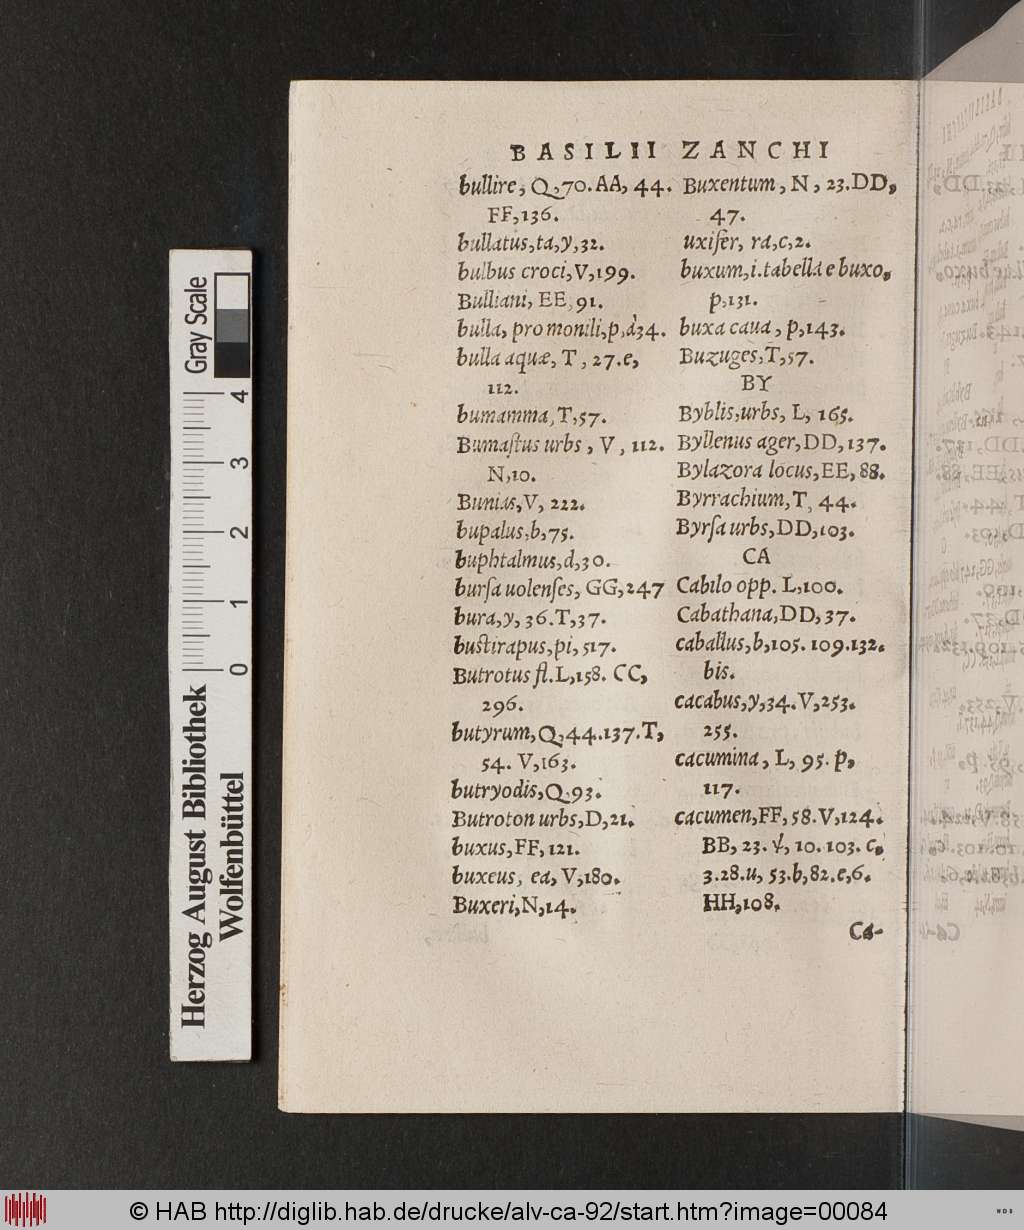 BASILII ZANCHI
bullire, Q, 70. AA, 44.
FF, 136.
bullatus, ta, y, 32.
bulbus croci, V, 199.
Bulliani, EE, 91.
bulla, pro monili, p, d34.
bulla aquæ, T, 27. e,
112.
bumamma, T, 57.
Bumaſtus urbs, V, 112.
N, 10.
Bunias, V, 222.
bupalus, b, 75.
buphtalmus, d, 30.
burſa uolenſes, GG, 247
bura, y, 36. T, 37.
buſtirapus, pi, 517.
Butrotus fl. L, 158. CC,
296.
butyrum, Q, 44. 137. T,
54. V, 163.
butryodis, Q. 93.
Butroton urbs, D, 21.
buxus, FF, 121.
buxeus, ea, V, 180.
Buxeri, N, 14.
Buxentum, N, 23. DD,
47.
uxifer, ra, c, 2.
buxum, i. tabella e buxo,
p, 131.
buxa caua, p, 143.
Buzuges, T, 57.
BY
Byblis, urbs, L, 165.
Byllenus ager, DD, 137.
Bylazora locus, EE, 88.
Byrrachium, T, 44.
Byrſa urbs, DD, 103.
CA
Cabilo opp. L, 100.
Cabathana, DD, 37.
caballus, b, 105. 109. 132.
bis.
cacabus, y, 34. V, 253.
255.
cacumina, L, 95. p,
117.
cacumen, FF, 58. V, 124.
BB, 23. ψ, 10. 103. c,
3. 28. u, 53. b, 82. e, 6.
HH, 108.
Ca-
Gray Scale
4 3 2 1 0
Herzog August Bibliothek
Wolfenbüttel
© HAB http://diglib.hab.de/drucke/alv-ca-92/start.htm?image=00084